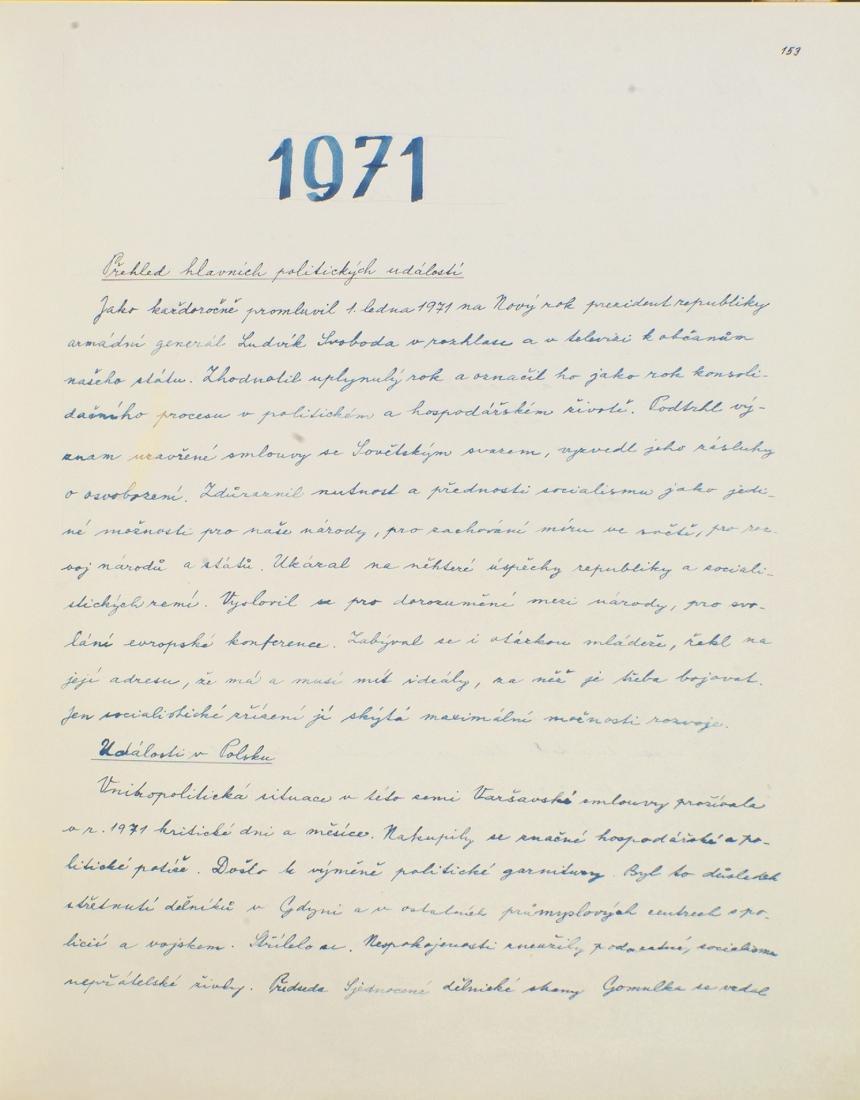 153
1971
Přehled hlavních politických událostí
Jako každoročně promluvil 1. ledna 1971 na Nový rok prezident republiky
armádní generál Ludvík Svoboda v rozhlase a v televizi k občanům
našeho státu. Zhodnotil uplynulý rok a označil ho jako rok konsoli-
dačního procesu v politickém a hospodářském životě. Podtrhl vý-
znam uzavřené smlouvy se Sovětským svazem, vyzvedl jeho zásluhy
o osvobození. Zdůraznil nutnost a přednosti socialismu jako jedi-
né možnosti pro naše národy, pro zachování míru ve světě, pro roz-
voj národů a států. Ukázal na některé úspěchy republiky a sociali-
stických zemí. Vyslovil se pro dorozumění mezi národy, pro svo-
lání evropské konference. Zabýval se i otázkou mládeže, řekl na
její adresu, že má a musí mít ideály, za něž je třeba bojovat.
Jen socialistické zřízení jí skýtá maximální možnosti rozvoje.
Události v Polsku
Vnitropolitická situace v této zemi Varšavské smlouvy prožívala
v r. 1971 kritické dni a měsíce. Nakupily se značné hospodářské a po-
litické potíže. Došlo k výměně politické garnitury. Byl to důsledek
střetnutí dělníků v Gdyni a v ostatních průmyslových centrech s po-
licií a vojskem. Střílelo se. Nespokojenosti zneužily podvratné, socialismu
nepřátelské živly. Předseda Sjednocené dělnické strany Gomulka se vzdal